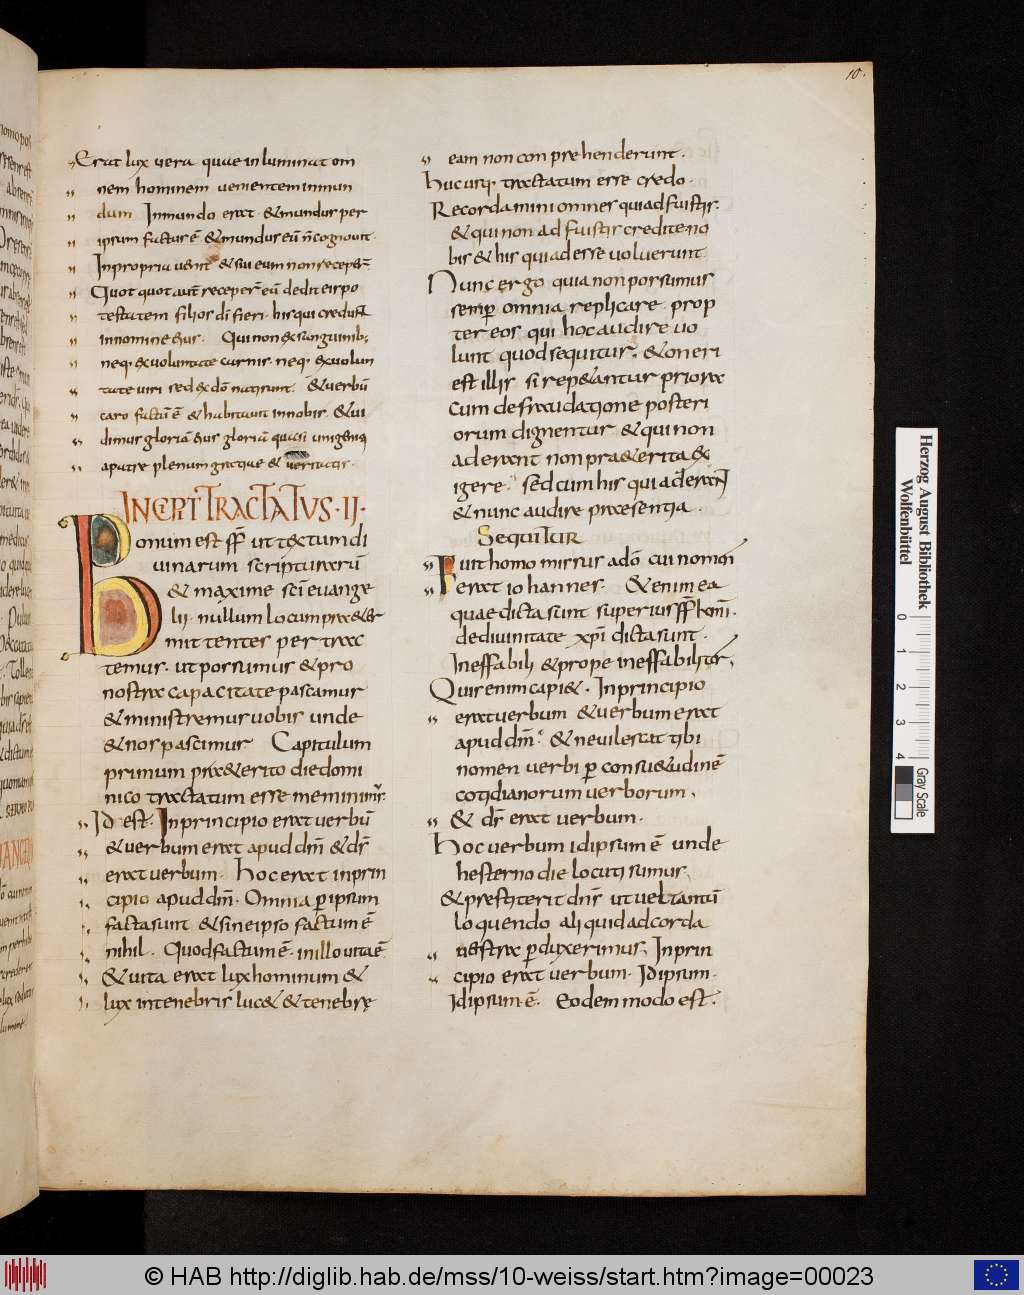 10.
Erat lux vera quae inluminat om
nem hominem venientem inmun
dum Inmundo erat · & mundus per
ipsum factus ē & mundus eū n̄ cognouit ·
Inpropria uenit & sui eum non receper̄
Quot quot aut̄ receper̄ eū dedit eis po
testatem filios di fieri · his qui credunt
innomine eius · Qui non ex sanguinib;
neq· ex uoluntate carnis · neq· ex uolun
tate uiri sed ex dō nati sunt · & uerbū
caro factū ē & habitauit innobis · & ui
dimus gloriā eius gloriā quasi unigeniti
apatre plenum gratiae & ueritatis ·
INCIPIT TRACTATUS · II ·
Bonum est ff̄ ut textum di
uinarum scripturarū
& maxime sc̄i euange
lii · nullum locum praeter
mittentes pertrac
temus · ut possumus & pro
nostra capacitate pascamur
& ministremus uobis unde
& nos pascimur Capitulum
primum praeterito die domi
nico tractatum esse meminimus ·
Id est · Inprincipio erat uerbū
& uerbum erat apud dm̄ & ds̄
erat uerbum · Hoc erat inprin
cipio apud dm̄ · Omnia p ipsum
facta sunt & sine ipso factum ē
nihil · Quod factum ē · inillo vita ē
& uita erat lux hominum &
lux intenebris luc& & tenebrę
eam non comprehenderunt ·
Hucusq· tractatum esse credo ·
Recordamini omnes qui adfuistis ·
& qui non adfuistis credite no
bis & his qui adesse uoluerunt ·
Nunc ergo quia non possumus
semp omnia replicare · prop
ter eos qui hoc audire uo
lunt quod sequitur · & oneri
est illis si repetantur priora
cum defraudatione posteri
orum dignentur & qui non
aderant non praeterita ex
igere · sed cum his qui aderant
& nunc audire praesentia ·
SEQUITUR
Fuit homo missus a dō cui nomen
erat iohannes · Etenim ea
quae dicta sunt superius ff̄ kmi ·
dediuinitate xpi dicta sunt ·
Ineffabili & prope ineffabiliter ,
Quis enim capi& · Inprincipio
erat uerbum & uerbum erat
apud dm̄ · & ne uilescat tibi
nomen uerbi p consuetudinē
cotidianorum uerborum ,
& ds̄ erat uerbum ·
Hoc uerbum idipsum ē unde
hesterno die locuti sumus ,
& prestiterit dns̄ ut uel tantū
loquendo aliquid ad corda
uestra pduxerimus , Inprin
cipio erat uerbum · Idipsum ·
Idipsum ē · Eodem modo est ·
Herzog August Bibliothek
Wolfenbüttel
0 1 2 3 4
Gray Scale
© HAB http://diglib.hab.de/mss/10-weiss/start.htm?image=00023